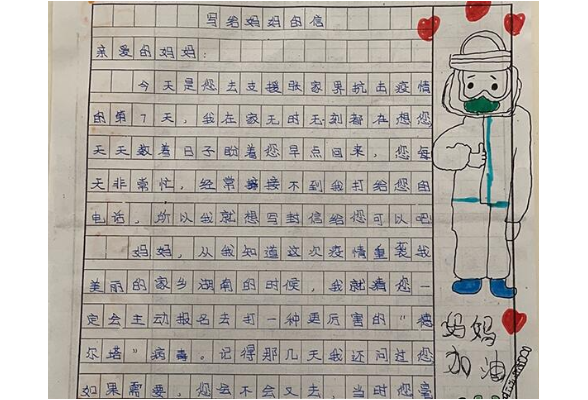 写给妈妈的信
亲爱的妈妈：
今天是您去支援张家界抗击疫情
的第7天，我在家无时无刻都在想您
天天数着日子盼着您早点回来，您每
天非常忙，经常接不到我打给您的
电话，所以我就想写封信给您可以吧
妈妈，从我知道这次疫情重袭我
美丽的家乡湖南的时候，我就猜您一
定会主动报名去打一种更厉害的“德
尔塔”病毒。记得那几天我还问过您
如果需要，您会不会又去，当时您毫
妈妈
加油